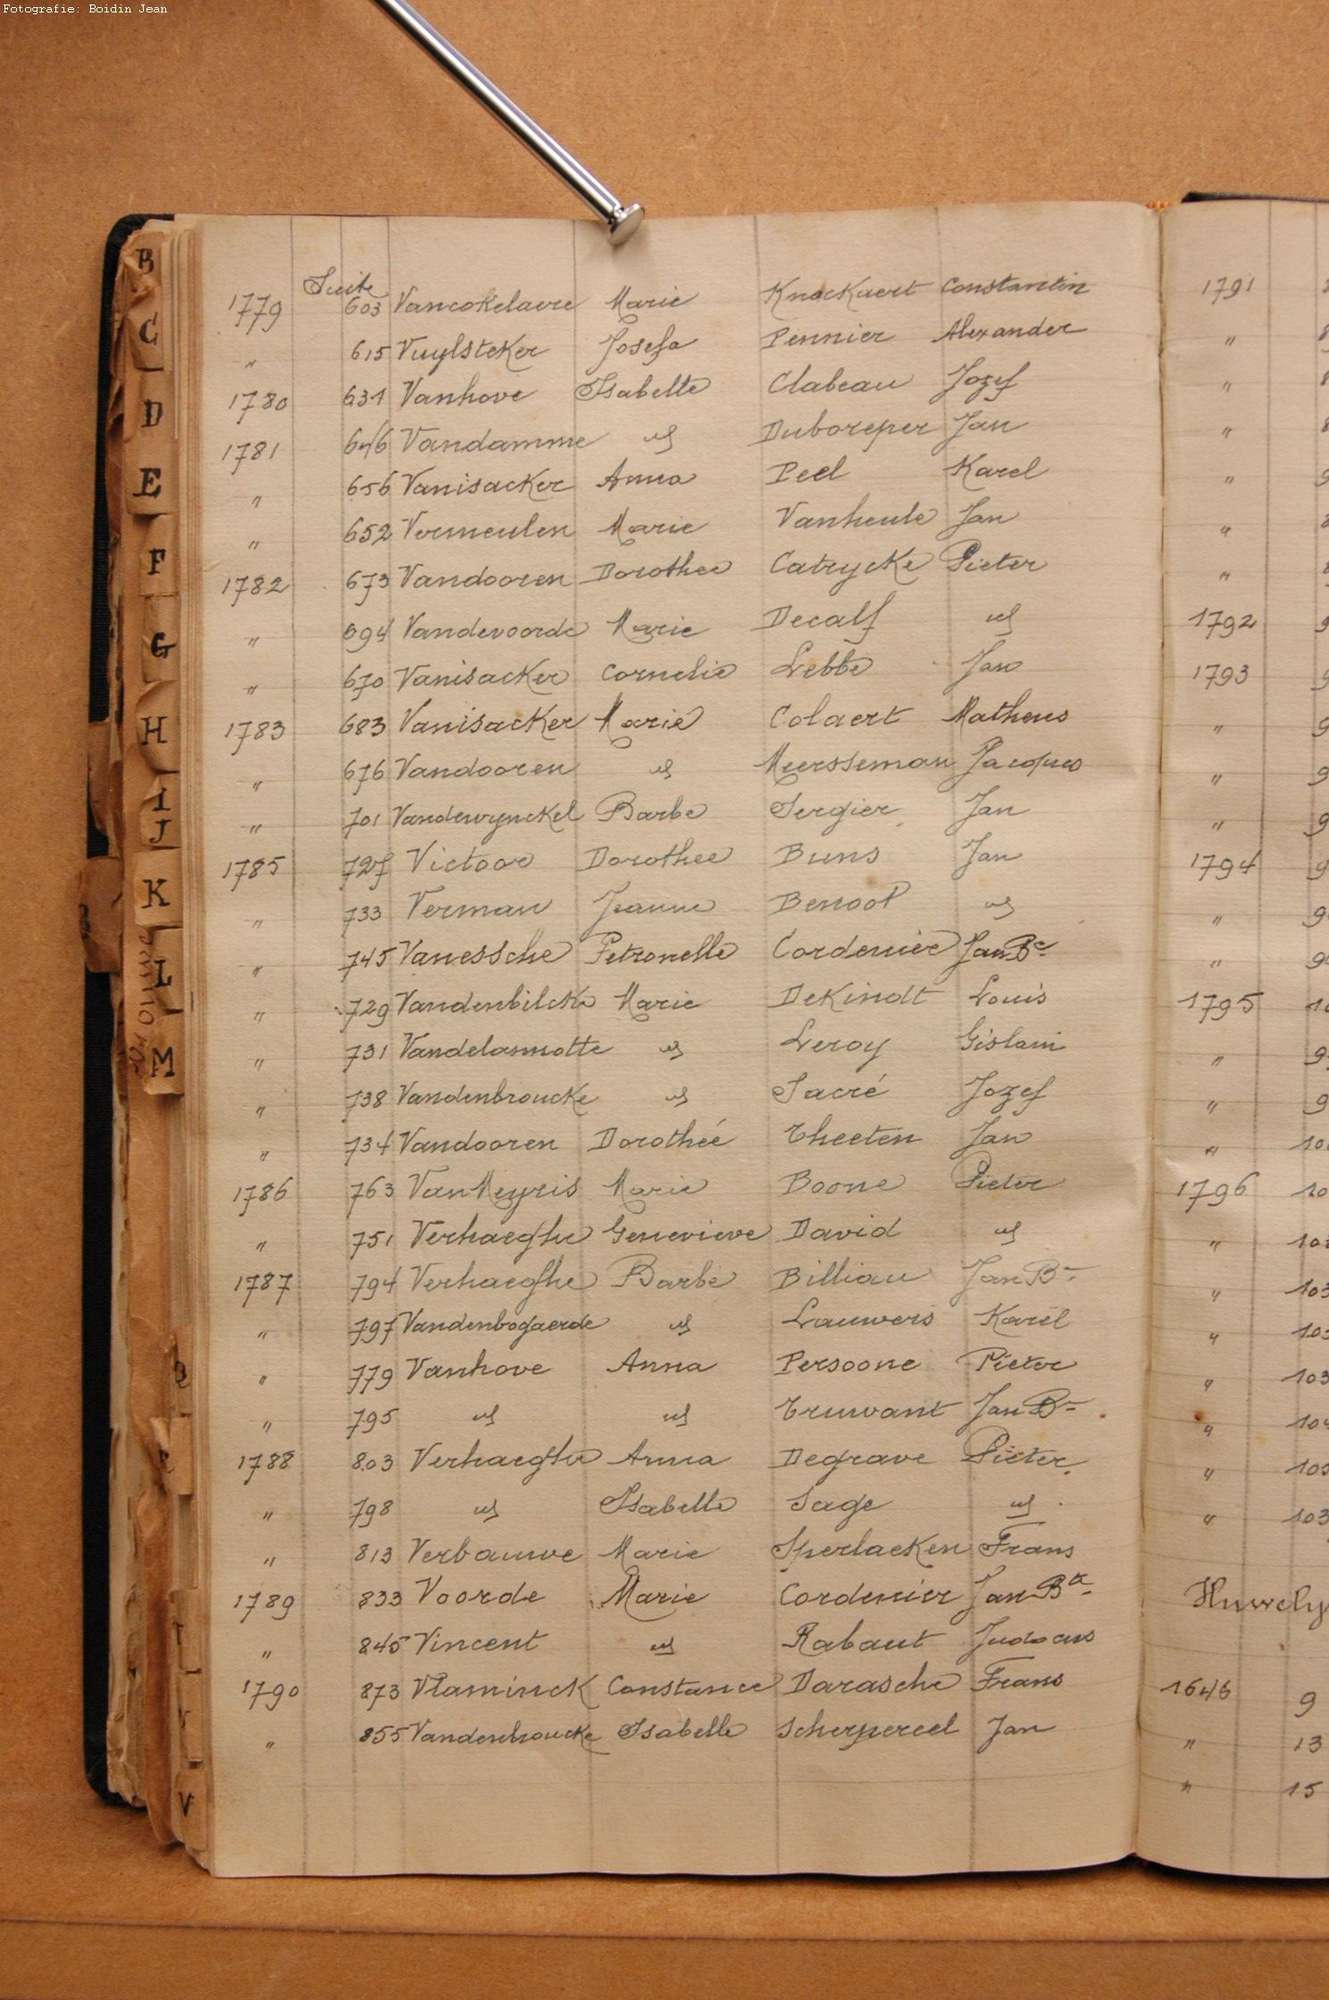 Fotografie: Boidin Jean
Suite
1779 603 Vancokelaere Marie Knockaert Constantin
" 615 Vuylsteker Josefa Pennier Alexander
1780 631 Vanhove Isabelle Clabeau Jozef
1781 646 Vandamme " Duboreper Jan
" 656 Vanisacker Anna Peel Karel
" 652 Vermeulen Marie Vanheule Jan
1782 673 Vandooren Dorothee Catrycke Pieter
" 694 Vandevoorde Marie Decalf "
" 670 Vanisacker Cornelie Lebbe Jan
1783 683 Vanisacker Marie Colaert Matheus
" 676 Vandooren " Meersseman Jacques
" 701 Vandewynckel Barbe Sergier Jan
1785 727 Victoor Dorothee Buns Jan
" 733 Verman Jeanne Benoot "
" 745 Vanessche Petronelle Cordenier Jan Bte
" 729 Vandenbilcke Marie Dekindt Louis
" 731 Vandelannotte " Leroy Gislain
" 738 Vandenbroucke " Sacré Jozef
" 734 Vandooren Dorothée Theeten Jan
1786 763 VanMeyris Marie Boone Pieter
" 751 Verhaeghe Genevieve David "
1787 794 Verhaeghe Barbe Billiau Jan Bte
" 797 Vandenbogaerde " Lauwers Karel
" 779 Vanhove Anna Persoone Pieter
" 795 " " Truwant Jan Bte
1788 803 Verhaeghe Anna Degrave Pieter
" 798 " Isabelle Sage "
" 813 Verbauwe Marie Sperlaeken Frans
1789 833 Voorde Marie Cordenier Jan Bte
" 845 Vincent " Rabaut Judocus
1790 873 Vlaminck Constance Darasche Frans
" 855 Vandenbroucke Isabelle Scherpereel Jan
B
C
D
E
F
G
H
I
J
K
L
M
V
1791
"
"
"
"
"
"
1792
1793
"
"
"
1794
"
"
1795
"
"
"
1796
"
"
"
"
"
"
"
Huwely
1646 9
" 13
" 15